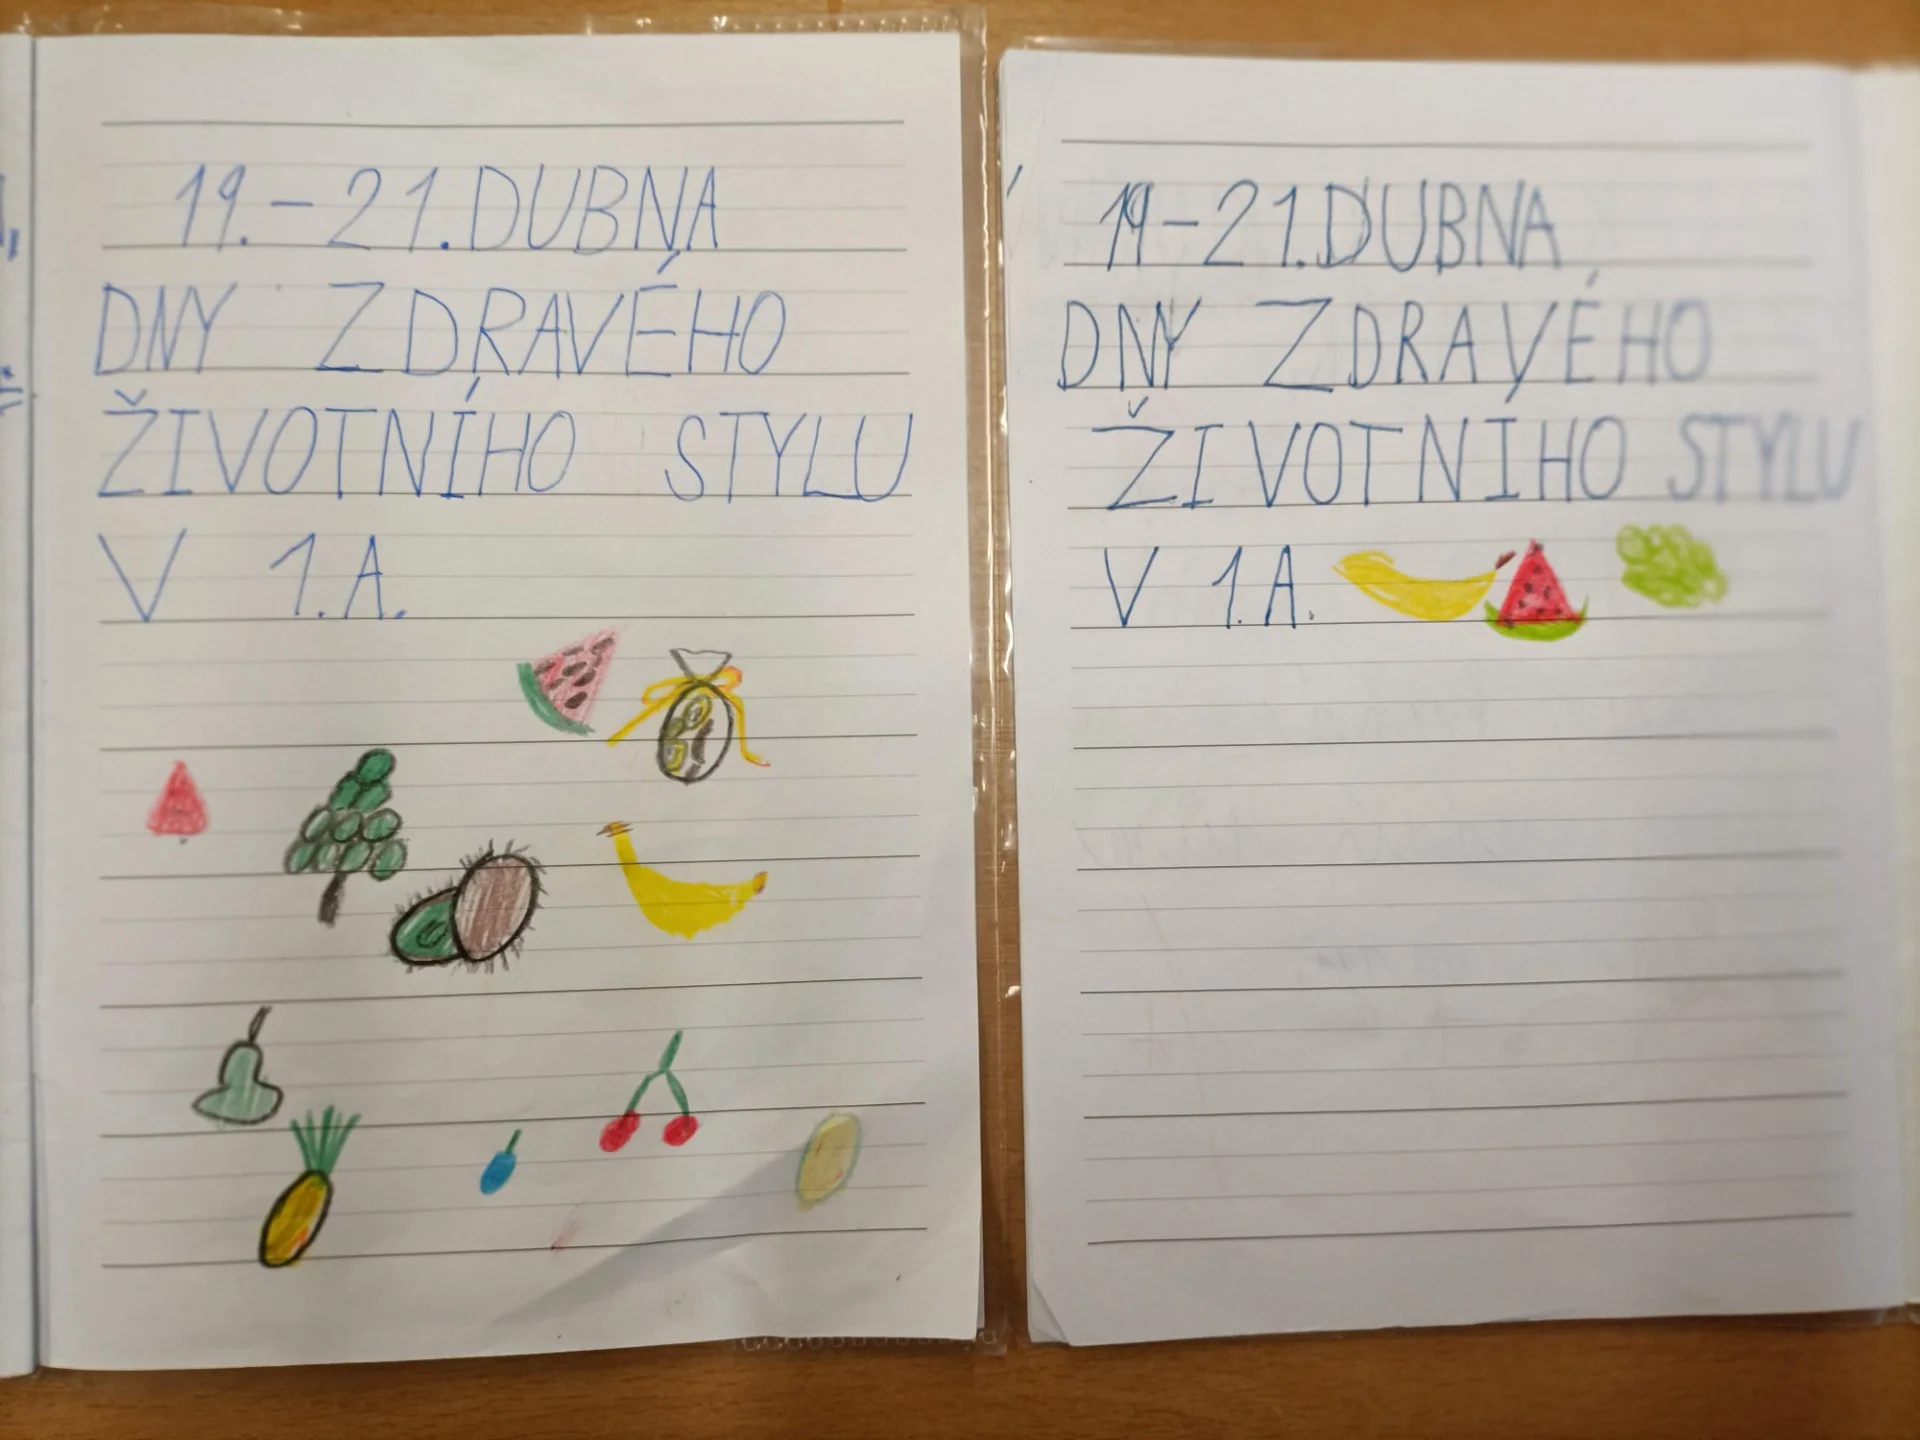 19.-21.DUBNA
DNY ZDRAVÉHO
ŽIVOTNÍHO STYLU
V 1.A.
19-21.DUBNA
DNY ZDRAVÉHO
ŽIVOTNÍHO STYLU
V 1.A.